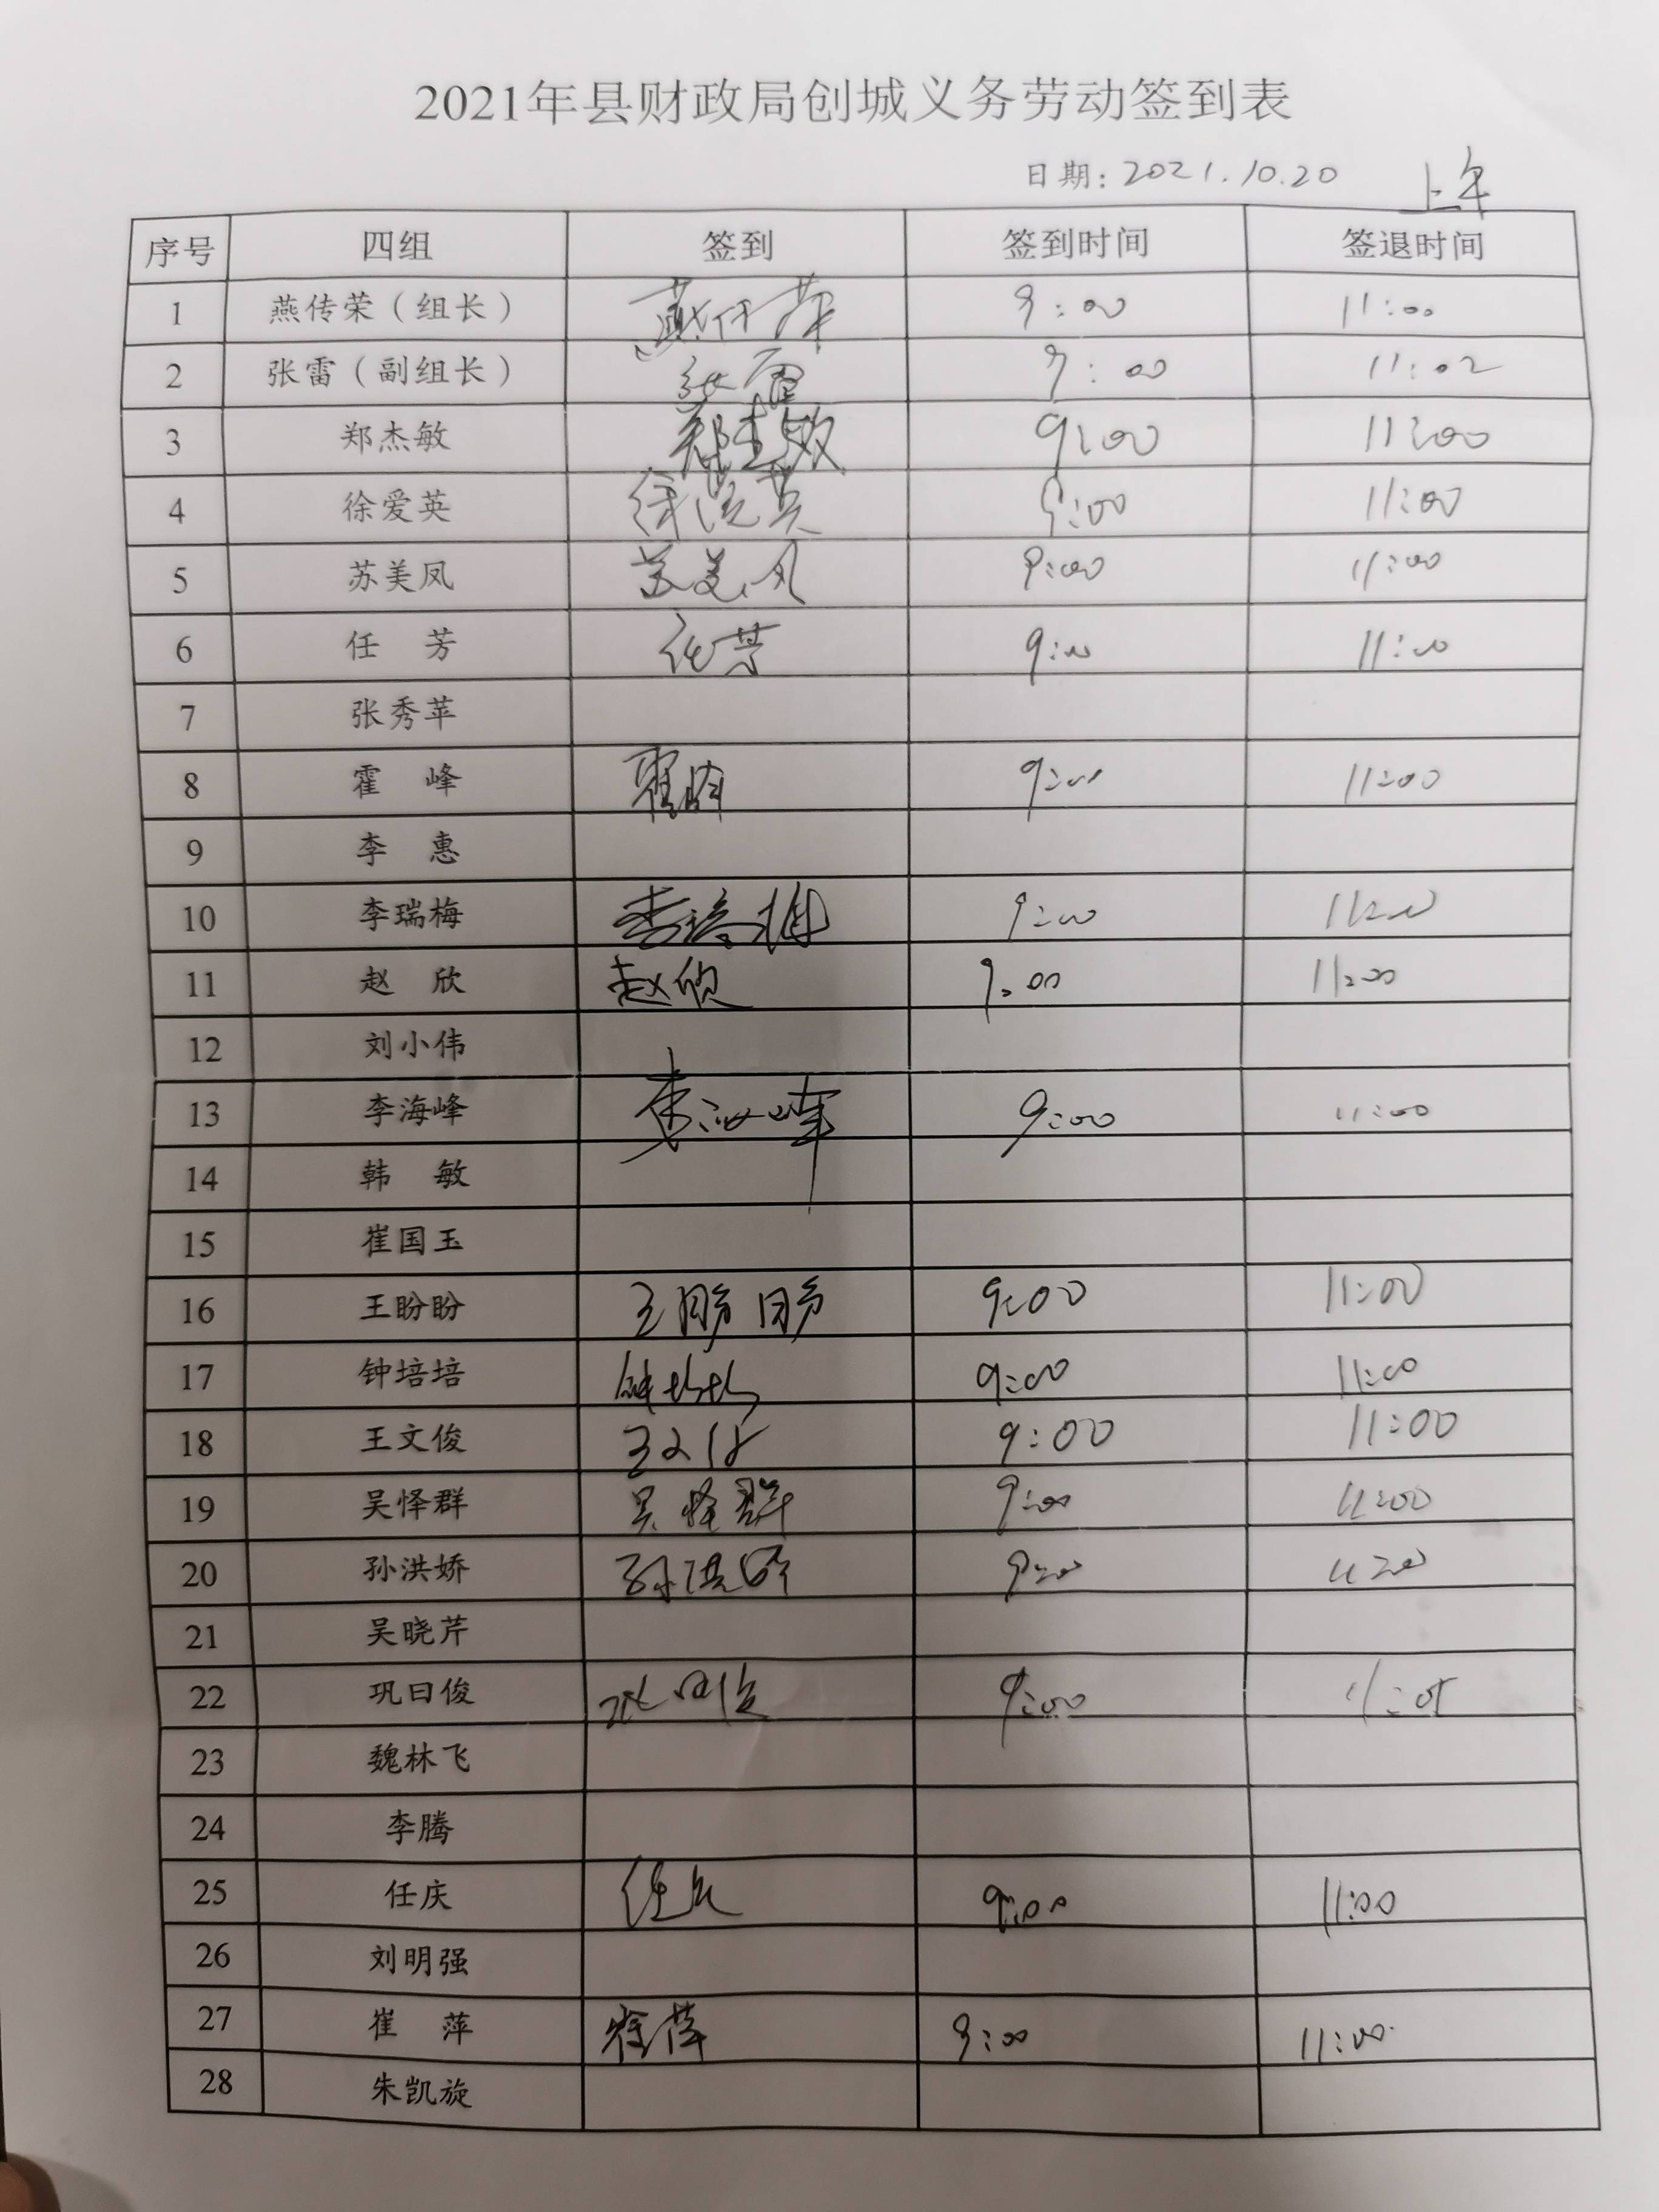 2021年县财政局创城义务劳动签到表
日期: 2021.10.20 上午
序号 四组 签到 签到时间 签退时间
1 燕传荣（组长） 燕传荣 9:00 11:00
2 张雷（副组长） 张雷 9:00 11:02
3 郑杰敏 郑杰敏 9:00 11:00
4 徐爱英 徐爱英 9:00 11:00
5 苏美凤 苏美凤 9:00 11:00
6 任 芳 任芳 9:00 11:00
7 张秀苹
8 霍 峰 9:00 11:00
9 李 惠
10 李瑞梅 李瑞梅 9:00 11:00
11 赵 欣 赵欣 9:00 11:00
12 刘小伟
13 李海峰 李海峰 9:00 11:00
14 韩 敏
15 崔国玉
16 王盼盼 王盼盼 9:00 11:00
17 钟培培 钟培培 9:00 11:00
18 王文俊 王文俊 9:00 11:00
19 吴怿群 吴怿群 9:00 11:00
20 孙洪娇 孙洪娇 9:00 11:00
21 吴晓芹
22 巩曰俊 巩曰俊 9:00 11:05
23 魏林飞
24 李腾
25 任庆 任庆 9:00 11:00
26 刘明强
27 崔 萍 崔萍 9:00 11:00
28 朱凯旋